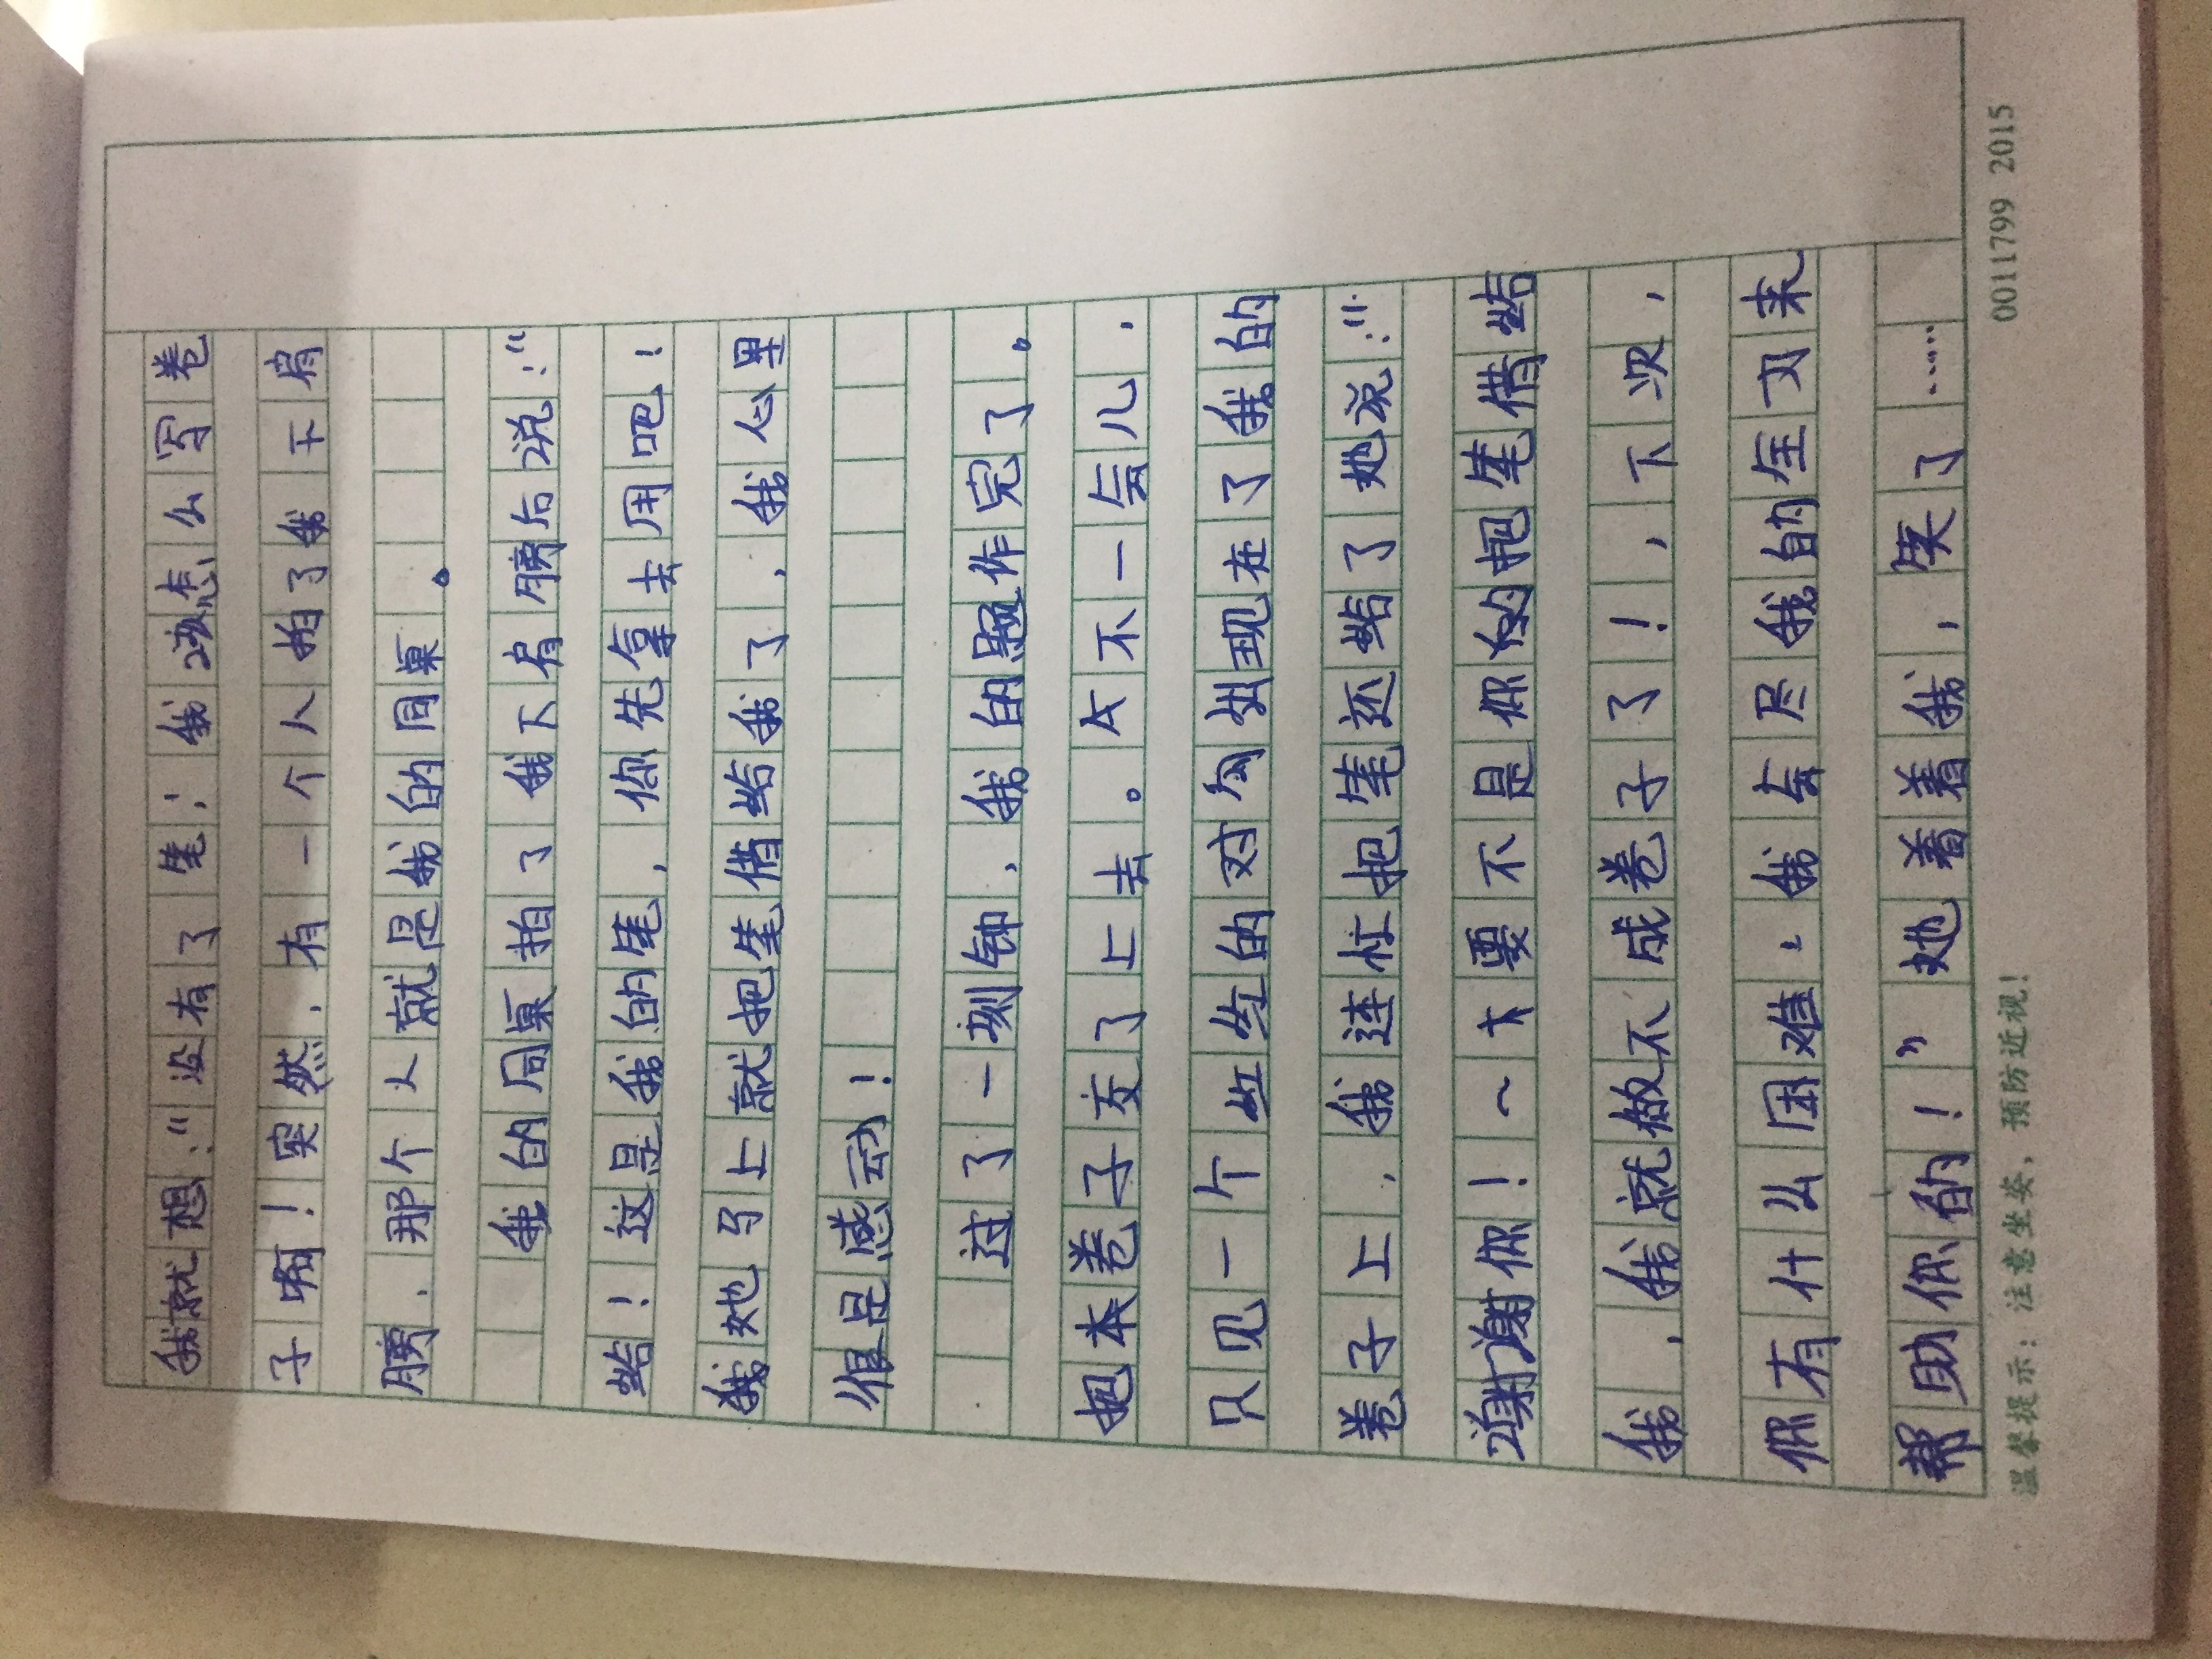 我就想:“没有了笔,我该怎么写卷
子啊!突然,有一个人拍了我下肩
膀,那个人就是我的同桌。
我的同桌拍了我下肩膀后说:“
给!这是我的笔,你先拿去用吧!
我她马上就把笔借给我了,我心里
很是感动!
过了一刻钟,我的题作完了。
把本卷子交了上去。不一会儿,
只见一个红红的对勾出现在了我的
卷子上,我连忙把笔还给了她说:“
谢谢你!~要不是你的把笔借给
我,我就做不成卷子了!,下次,
你有什么困难,我会尽我的全力来
帮助你的!”她着着我,笑了……
温馨提示:注意坐姿,预防近视!
0011799 2015